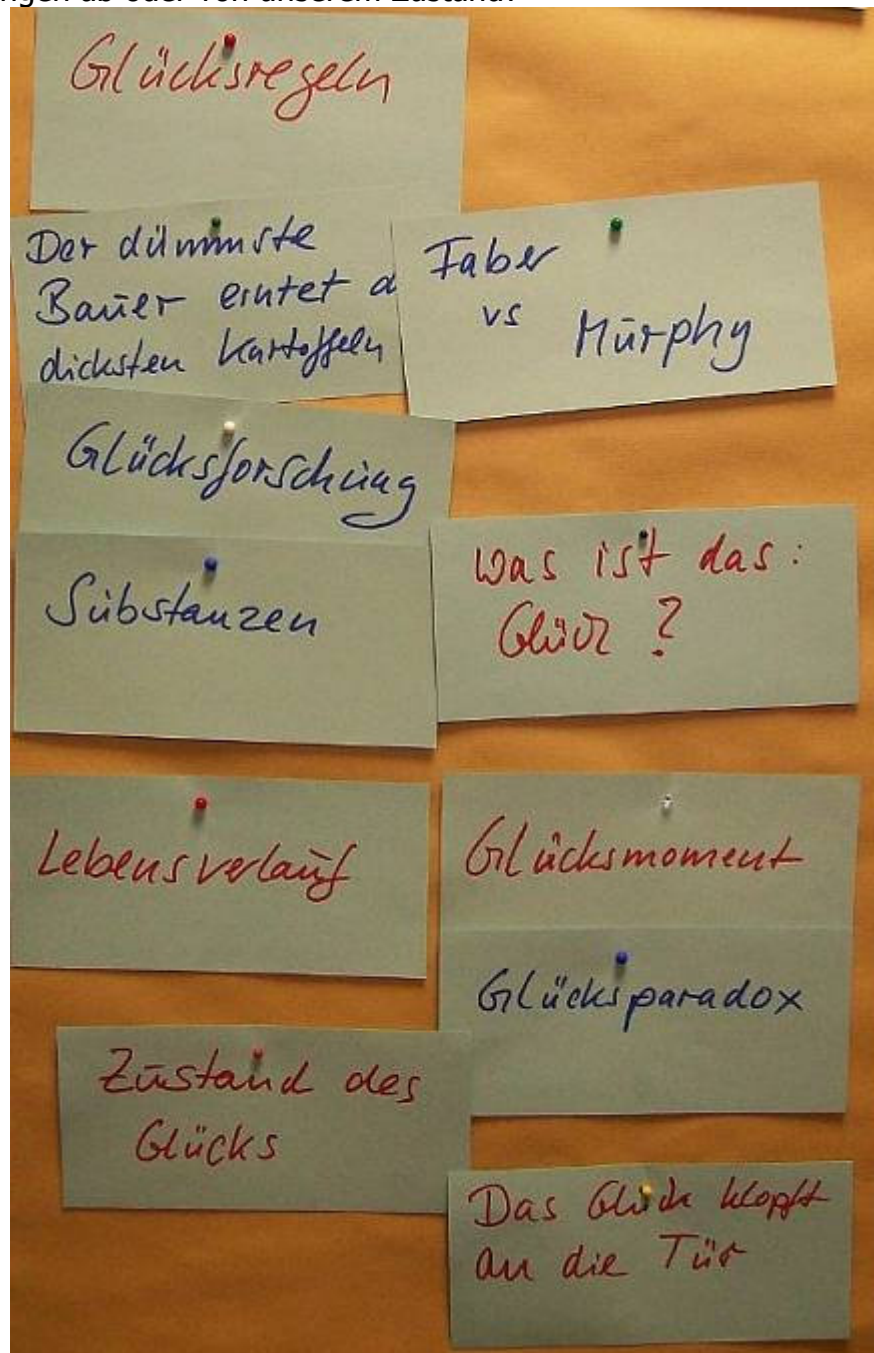 ab oder von unserem Zustand?
Glücksregeln
Der dümmste
Bauer erntet d
dicksten Kartoffeln
Faber
vs Murphy
Glücksforschung
Substanzen
Was ist das:
Glück ?
Lebensverlauf
Glücksmoment
Glücksparadox
Zustand des
Glücks
Das Glück klopft
an die Tür